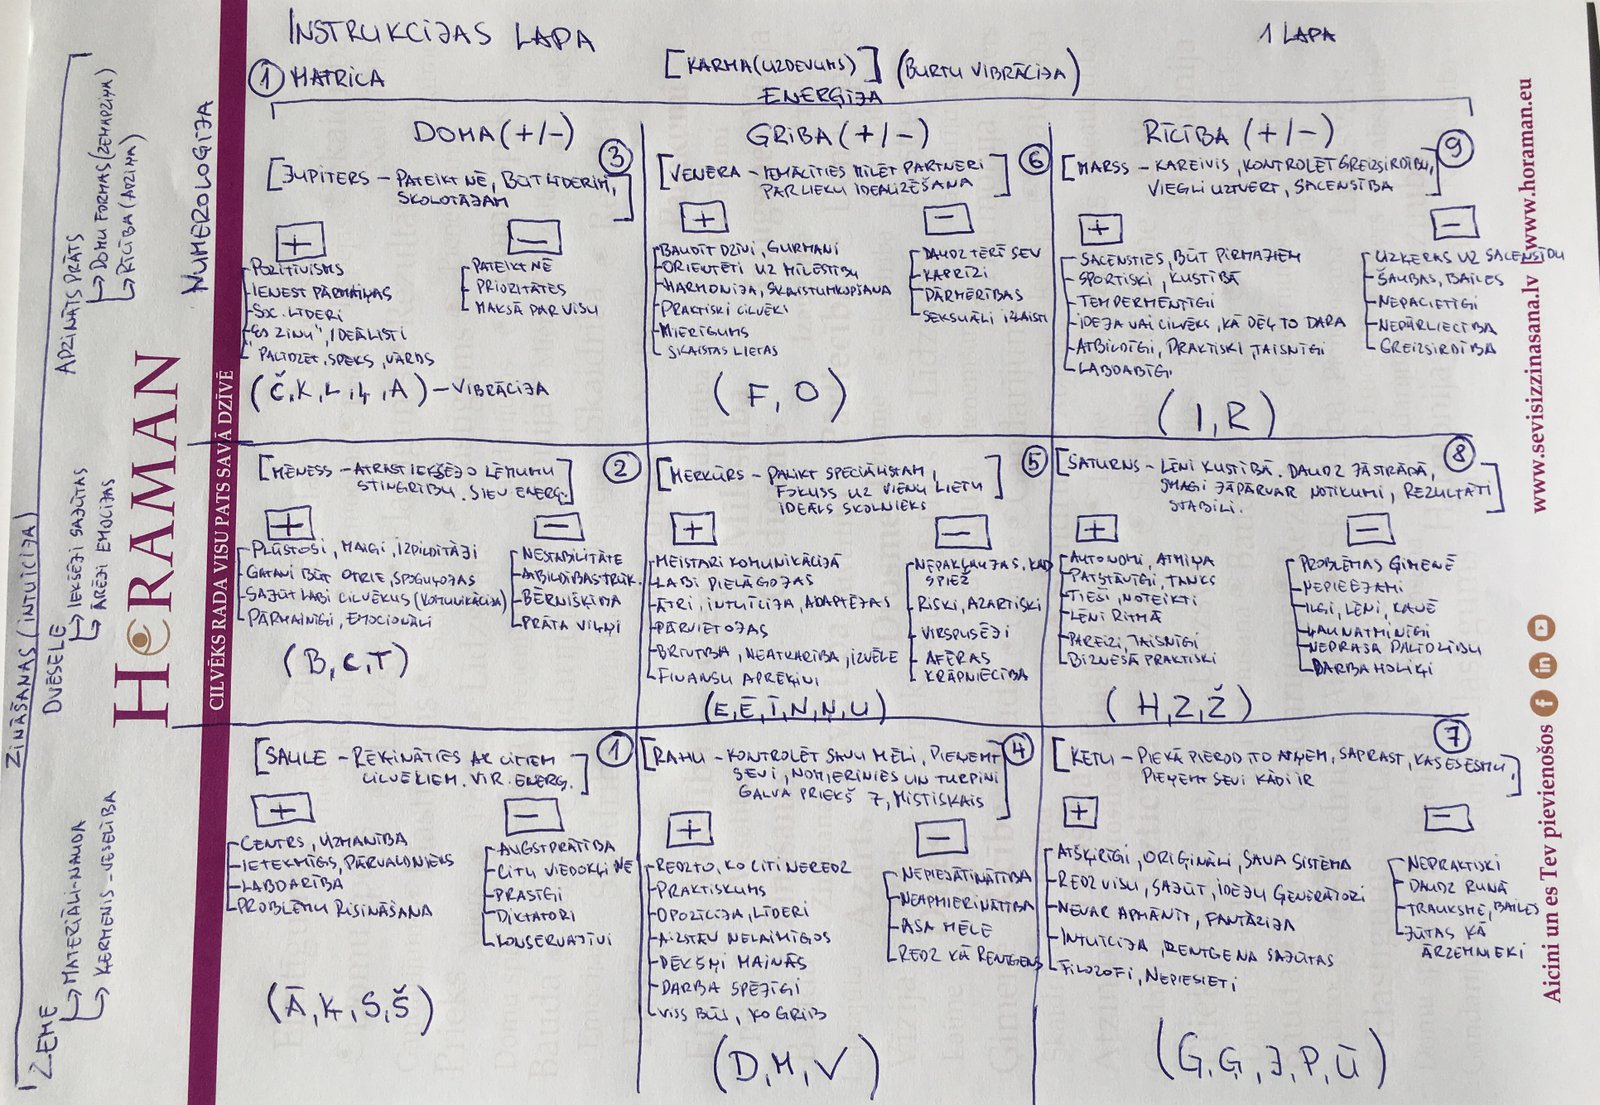 INSTRUKCIJAS LAPA
1 LAPA
① MATRICA
[KARMA (UZDEVUMS)] (BURTU VIBRĀCIJA)
ENERĢIJA
NUMEROLOĢIJA
ZINĀŠANAS (INTUĪCIJA)
APZINĀTS PRĀTS
DOMU FORMAS (ZEMAPZIŅA)
RĪCĪBA (APZIŅA)
DVĒSELE
IEKŠĒJI SAJŪTAS
ĀRĒJI EMOCIJAS
ZEME
MATERIĀLI-NAUDA
ĶERMENIS-VESELĪBA
HORAMAN
CILVĒKS RADA VISU PATS SAVĀ DZĪVĒ
DOMA (+/-)
③
[JUPITERS - PATEIKT NĒ, BŪT LĪDERIM,
SKOLOTĀJAM]
+
POZITĪVISMS
IENEST PĀRMAIŅAS
SOC. LĪDERI
"ES ZINU", IDEĀLISTI
PALĪDZĒT, SPĒKS, VĀRDS
-
PATEIKT NĒ
PRIORITĀTES
MAKSĀ PAR VISU
(Č, K, L, Ļ, A) - VIBRĀCIJA
GRIBA (+/-)
⑥
[VENERA - IEMĀCĪTIES MĪLĒT PARTNERI
PĀRLIEKU IDEALIZĒŠANA]
+
BAUDĪT DZĪVI, GURMĀNI
ORIENTĒTI UZ MĪLESTĪBU
HARMONIJA, SKAISTUMKOPŠANA
PRAKTISKI CILVĒKI
MIERĪGUMS
SKAISTAS LIETAS
-
DAUDZ TĒRĒ SEV
KAPRĪZI
PĀRMĒRĪBAS
SEKSUĀLI IZLAISTI
(F, O)
RĪCĪBA (+/-)
⑨
[MARSS - KAREIVIS, KONTROLĒT GREIZSIRDĪBU,
VIEGLI UZTVERT, SACENSĪBA]
+
SACENSTIES, BŪT PIRMAJIEM
SPORTISKI, KUSTĪBĀ
TEMPERMENTĪGI
IDEJA VAI CILVĒKS, KĀ DĒĻ TO DARA
ATBILDĪGI, PRAKTISKI, TAISNĪGI
LABDABĪGI
-
UZĶERAS UZ SACENSĪBU
ŠAUBAS, BAILES
NEPACIETĪGI
NEPĀRLIECĪBA
GREIZSIRDĪBA
(I, R)
②
[MĒNESS - ATRAST IEKŠĒJO LĒMUMU
STINGRĪBU. SIEV. ENERĢ.]
+
PLŪSTOŠI, MAIGI, IZPILDĪTĀJI
GATAVI BŪT OTRIE, SPOGUĻOJAS
SAJŪT LABI CILVĒKUS (KOMUNIKĀCIJA)
PĀRMAINĪGI, EMOCIONĀLI
-
NESTABILITĀTE
ATBILDĪBAS TRŪK.
BĒRNIŠĶĪBA
PRĀTA VIĻŅI
(B, C, T)
⑤
[MERKŪRS - PALIKT SPECIĀLISTAM,
FOKUSS UZ VIENU LIETU
IDEĀLS SKOLNIEKS]
+
MEISTARI KOMUNIKĀCIJĀ
LABI PIELĀGOJAS
ĀTRI, INTUĪCIJA, ADAPTĒJAS
PĀRVIETOJAS
BRĪVĪBA, NEATKARĪBA, IZVĒLE
FINANŠU APRĒĶINI
-
NEPAKĻAUJAS, KAD
SPIEŽ
RISKI, AZARTISKI
VIRSPUSĒJI
AFĒRAS
KRĀPNIECĪBA
(E, Ē, Ī, N, Ņ, U)
⑧
[SATURNS - LĒNI KUSTĪBĀ. DAUDZ JĀSTRĀDĀ,
SMAGI JĀPĀRVAR NOTIKUMI, REZULTĀTI
STABILI.]
+
AUTONOMI, ATMIŅA
PATSTĀVĪGI, TANKS
TIEŠI, NOTEIKTI
LĒNI RITMĀ
PAREIZI, TAISNĪGI
BIZNESĀ PRAKTISKI
-
PROBLĒMAS ĢIMENĒ
NEPIEEJAMI
ILGI, LĒNI, KAVĒ
ĻAUNATMINĪGI
NEPRASA PALĪDZĪBU
DARBAHOLIĶI
(H, Z, Ž)
①
[SAULE - RĒĶINĀTIES AR CITIEM
CILVĒKIEM. VĪR. ENERĢ.]
+
CENTRS, UZMANĪBA
IETEKMĪGS, PĀRVALDNIEKS
LABDARĪBA
PROBLĒMU RISINĀŠANA
-
AUGSTPRĀTĪBA
CITU VIEDOKĻI NĒ
PRASĪGI
DIKTATORI
KONSERVATĪVI
(Ā, Ķ, S, Š)
④
[RAHU - KONTROLĒT SAVU MĒLI, PIEŅEMT
SEVI, NOMIERINIES UN TURPINI
GALVA PRIEKŠ 7, MISTISKAIS]
+
REDZ TO, KO CITI NEREDZ
PRAKTISKUMS
OPOZĪCIJA, LĪDERI
AIZSTĀV NELAIMĪGOS
DĒKAIŅI MAINĀS
DARBA SPĒJĪGI
VISS BŪS, KO GRIB
-
NEPIEJĀTINĀTĪBA
NEAPMIERINĀTĪBA
ASA MĒLE
REDZ KĀ RENTGENS
(D, M, V)
⑦
[KETU - PIE KĀ PIEROD, TO ATŅEM, SAPRAST, KAS ES ESMU,
PIEŅEMT SEVI KĀDI IR]
+
ATŠĶIRĪGI, ORIĢINĀLI, SAVA SISTĒMA
REDZ VISU, SAJŪT, IDEJU ĢENERATORI
NEVAR APMĀNĪT, FANTĀZIJA
INTUĪCIJA, RENTGENA SAJŪTAS
FILOZOFI, NEPIESIETI
-
NEPRAKTISKI
DAUDZ RUNĀ
TRAUKSME, BAILES
JŪTAS KĀ
ĀRZEMNIEKI
(G, Ģ, J, P, Ū)
Aicini un es Tev pievienošos
www.sevisizzinasana.lv | www.horaman.eu